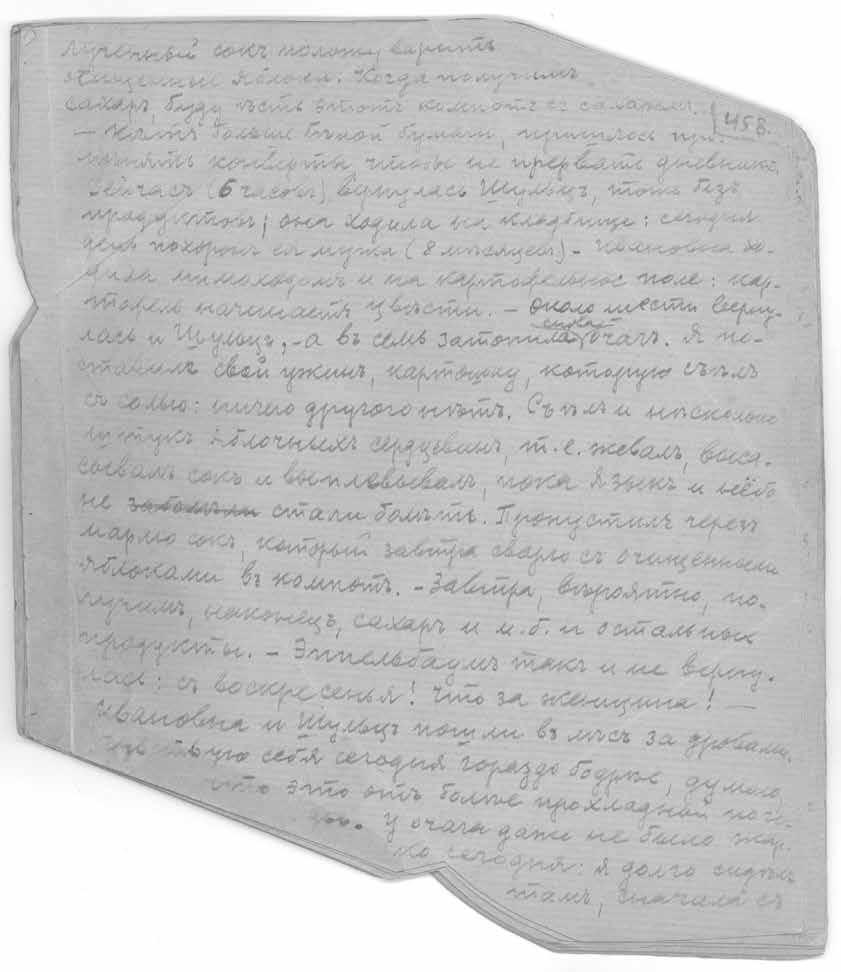 лученный сокъ положу варить
очищенныя яблоки. Когда получимъ
сахаръ, буду ѣсть этотъ компотъ съ сахаромъ.
458.
— Нѣтъ больше бѣлой бумаги, пришлось при-
мѣнять конверты, чтобы не прервать дневника.
Сейчасъ (6 часовъ) вернулась Шульцъ, тоже безъ
продуктовъ; она ходила на кладбище: сегодня
день похоронъ ея мужа (8 мѣсяцевъ). — Ивановна хо-
дила мимоходомъ и на картофельное поле: кар-
тофель начинаетъ цвѣсти. — Около шести верну-
лась и Шульцъ, — а въ семь затопила очагъ. Я по-
ставилъ свой ужинъ, картошку, которую съѣлъ
съ солью: ничего другого нѣтъ. Съѣлъ и нѣсколько
штукъ яблочныхъ сердцевинъ, т.е. жевалъ, выса-
сывалъ сокъ и выплевывалъ, пока языкъ и нёбо
не заболѣли стали болѣть. Пропустилъ черезъ
марлю сокъ, который завтра сварю съ очищенными
яблоками въ компотъ. — Завтра, вѣроятно, по-
лучимъ, наконецъ, сахаръ и м.б. и остальные
продукты. — Эппельбаумъ такъ и не верну-
лась: съ воскресенья! Что за женщина! —
Ивановна и Шульцъ пошли въ лѣсъ за дровами.
Чувствую себя сегодня гораздо бодрѣе, думаю,
что это отъ болѣе прохладной пого-
ды. У очага даже не было жар-
ко сегодня: я долго сидѣлъ
тамъ, сначала съ